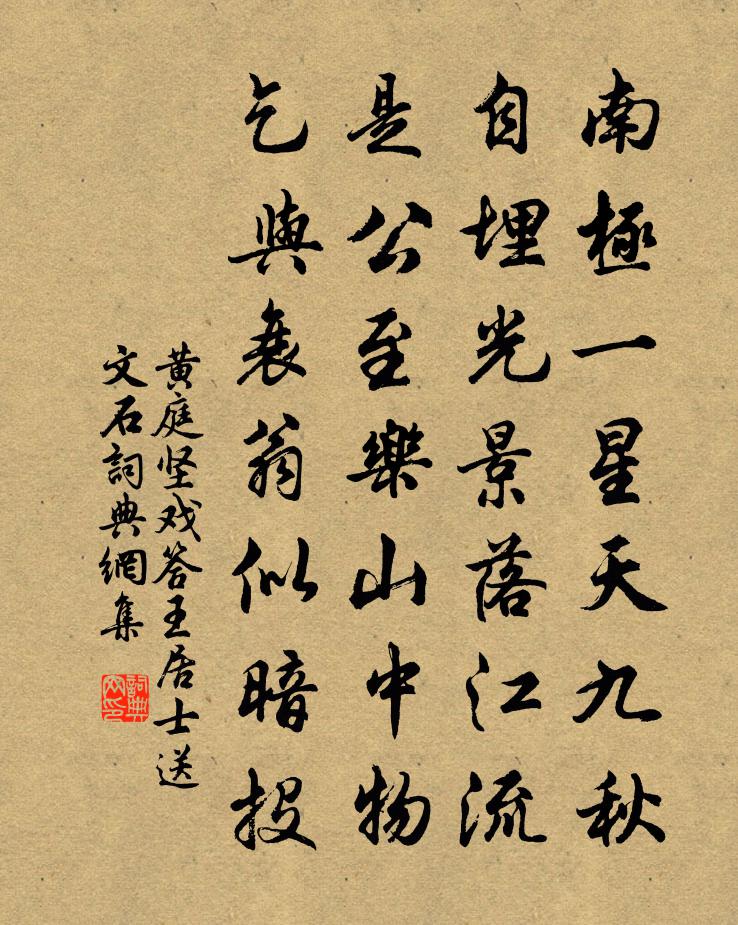 南極一星天九秋
自埋光景落江流
是公至樂山中物
乞與衰翁似暗投
黄庭坚戏答王居士送
文石詞典網集
詞典